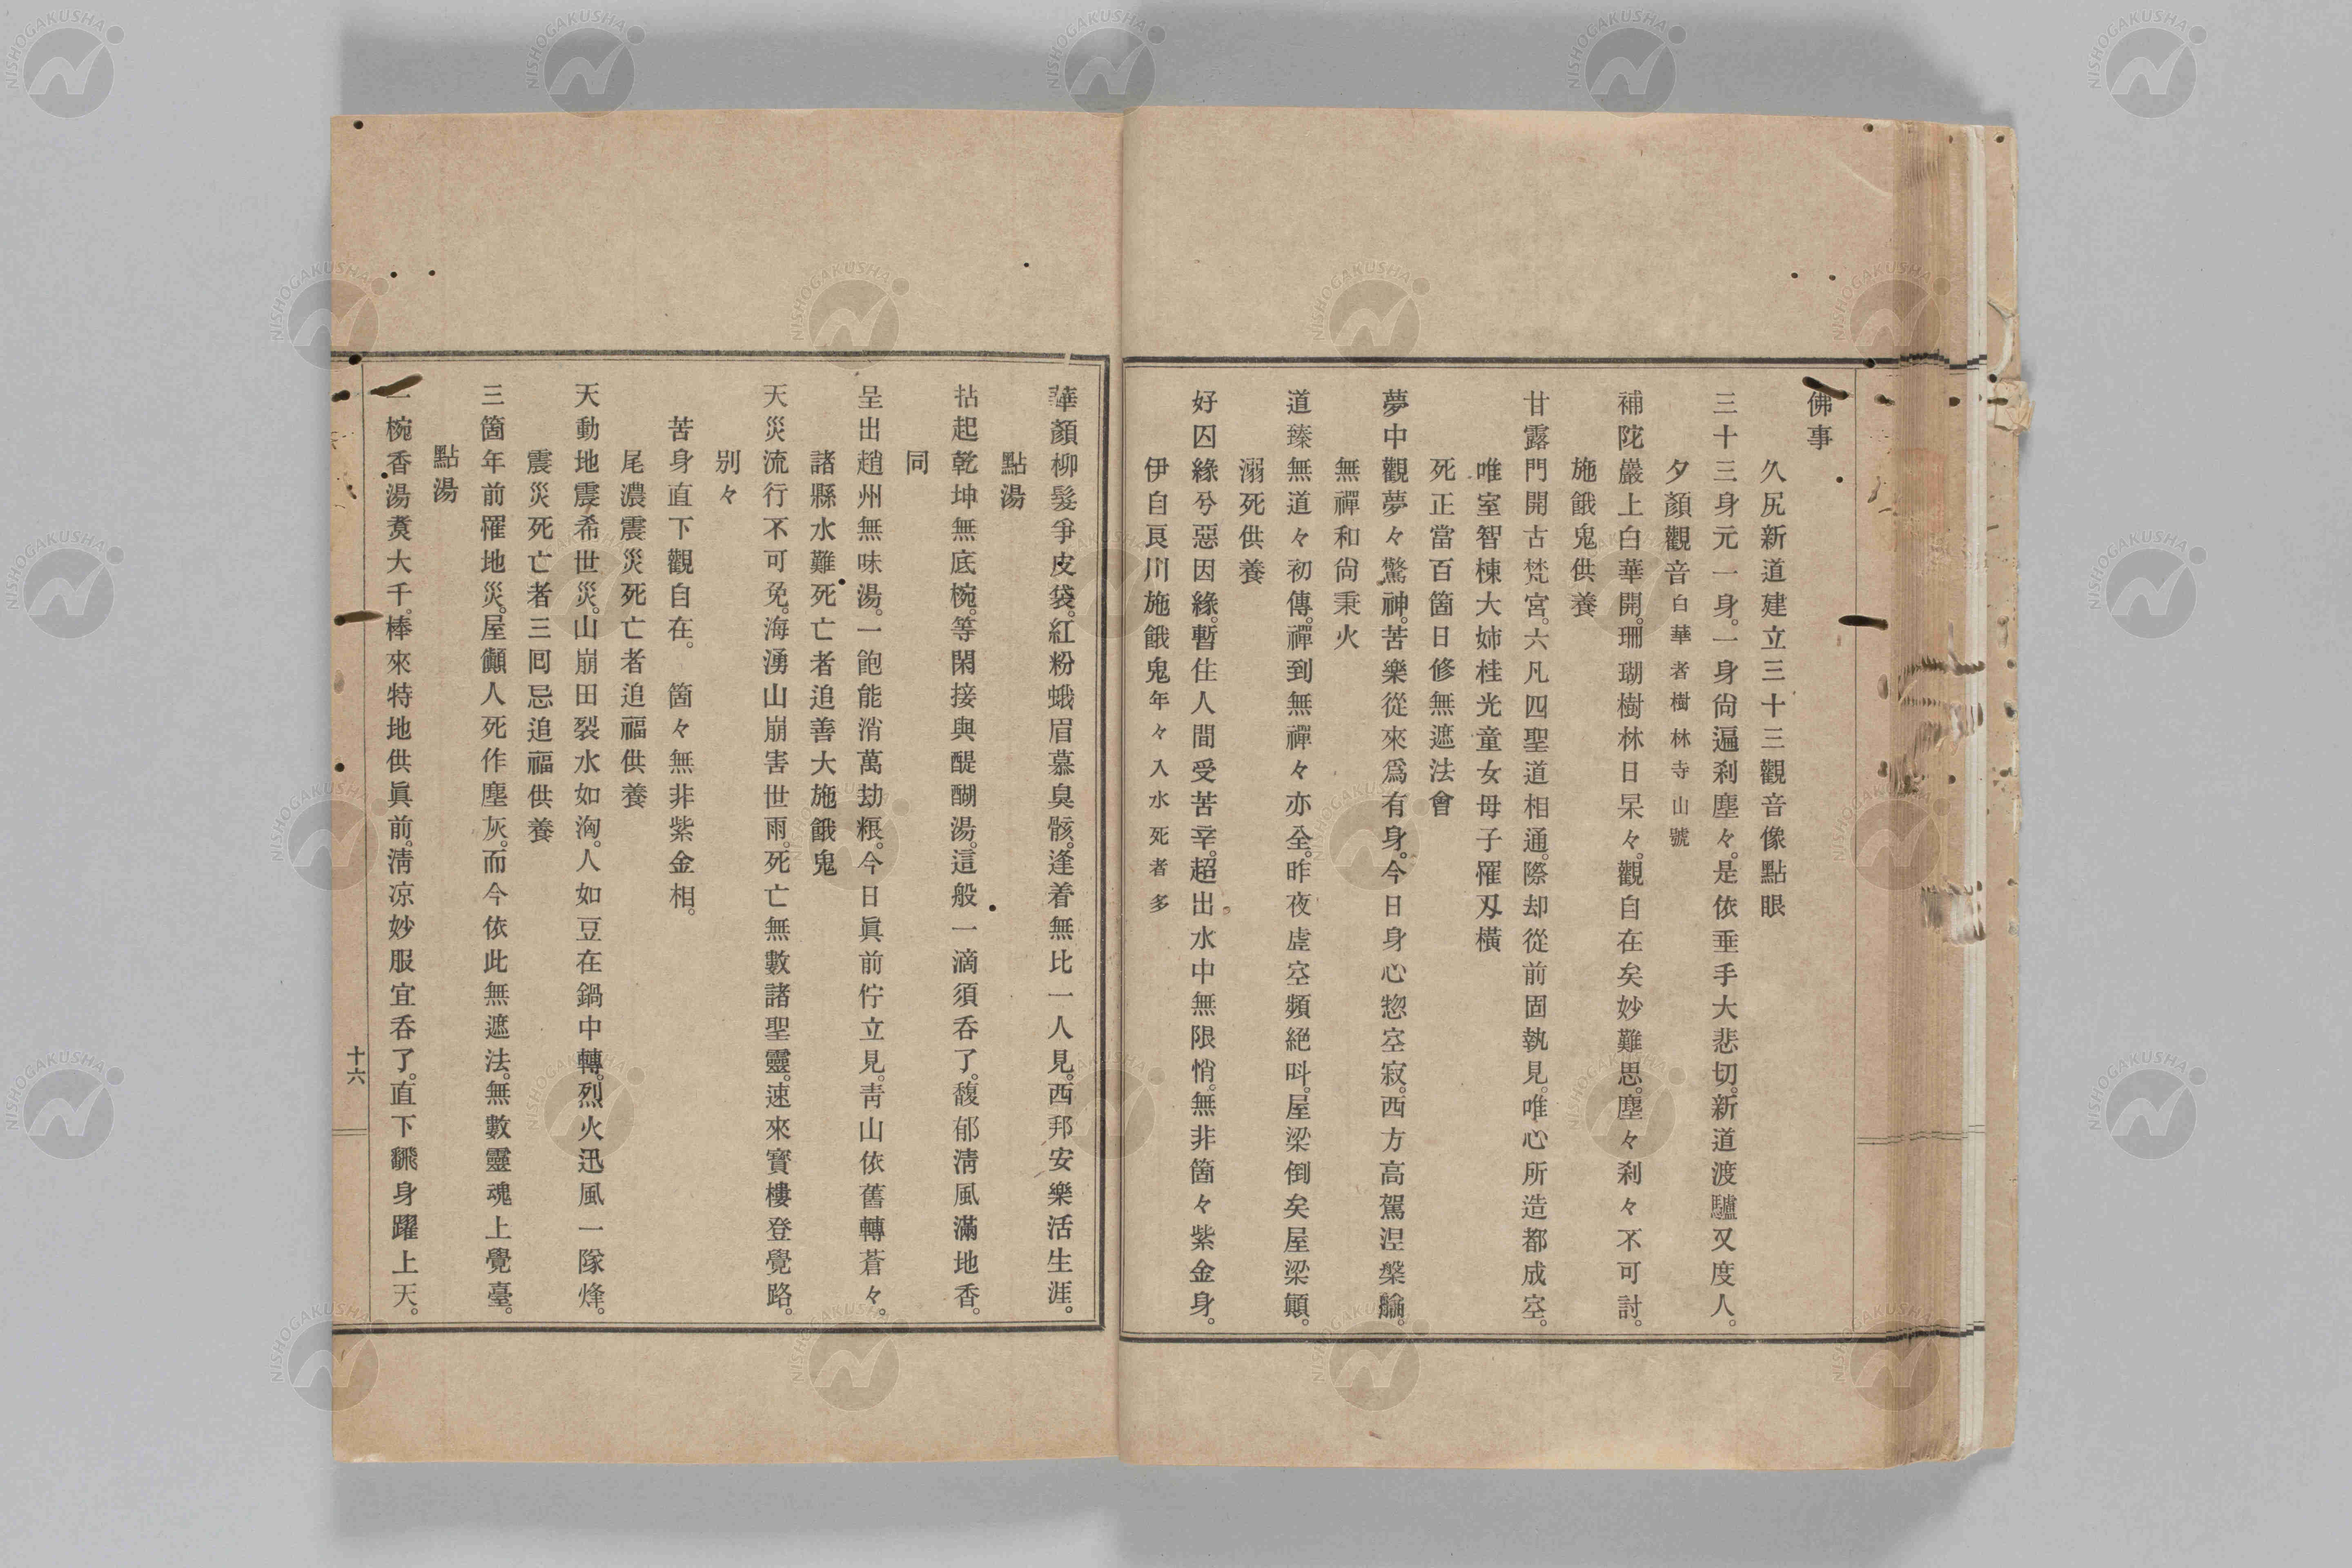 佛事
久尻新道建立三十三觀音像點眼
三十三身元一身。一身尙遍刹塵々。是依垂手大悲切。新道渡驢又度人。
夕顏觀音白華者樹林寺山號
補陀巖上白華開。珊瑚樹林日杲々。觀自在矣妙難思。塵々刹々不可討。
施餓鬼供養
甘露門開古梵宮。六凡四聖道相通。際却從前固執見。唯心所造都成空。
唯室智棟大姉桂光童女母子罹刄橫
死正當百箇日修無遮法會
夢中觀夢々驚神。苦樂從來爲有身。今日身心惣空寂。西方高駕涅槃輪。
無禪和尙秉火
道臻無道々初傳。禪到無禪々亦全。昨夜虛空頻絕呌。屋梁倒矣屋梁顚。
溺死供養
好囚緣兮惡因緣。暫住人間受苦辛。超出水中無限悄。無非箇々紫金身。
伊自良川施餓鬼年々入水死者多
華顏柳髮爭皮袋。紅粉蛾眉慕臭骸。逢着無比一人見。西邦安樂活生涯。
點湯
拈起乾坤無底椀。等閑接與醍醐湯。這般一滴須呑了。馥郁淸風滿地香。
同
呈出趙州無味湯。一飽能消萬劫粻。今日眞前佇立見。靑山依舊轉蒼々。
諸縣水難死亡者追善大施餓鬼
天災流行不可免。海湧山崩害世雨。死亡無數諸聖靈。速來寶樓登覺路。
別々
苦身直下觀自在。 箇々無非紫金相。
尾濃震災死亡者追福供養
天動地震希世災。山崩田裂水如洶。人如豆在鍋中轉。烈火迅風一隊烽。
震災死亡者三囘忌追福供養
三箇年前罹地災。屋顚人死作塵灰。而今依此無遮法。無數靈魂上覺臺。
點湯
一椀香湯煑大千。棒來特地供眞前。淸凉妙服宜呑了。直下飜身躍上天。
十六
NISHOGAKUSHA